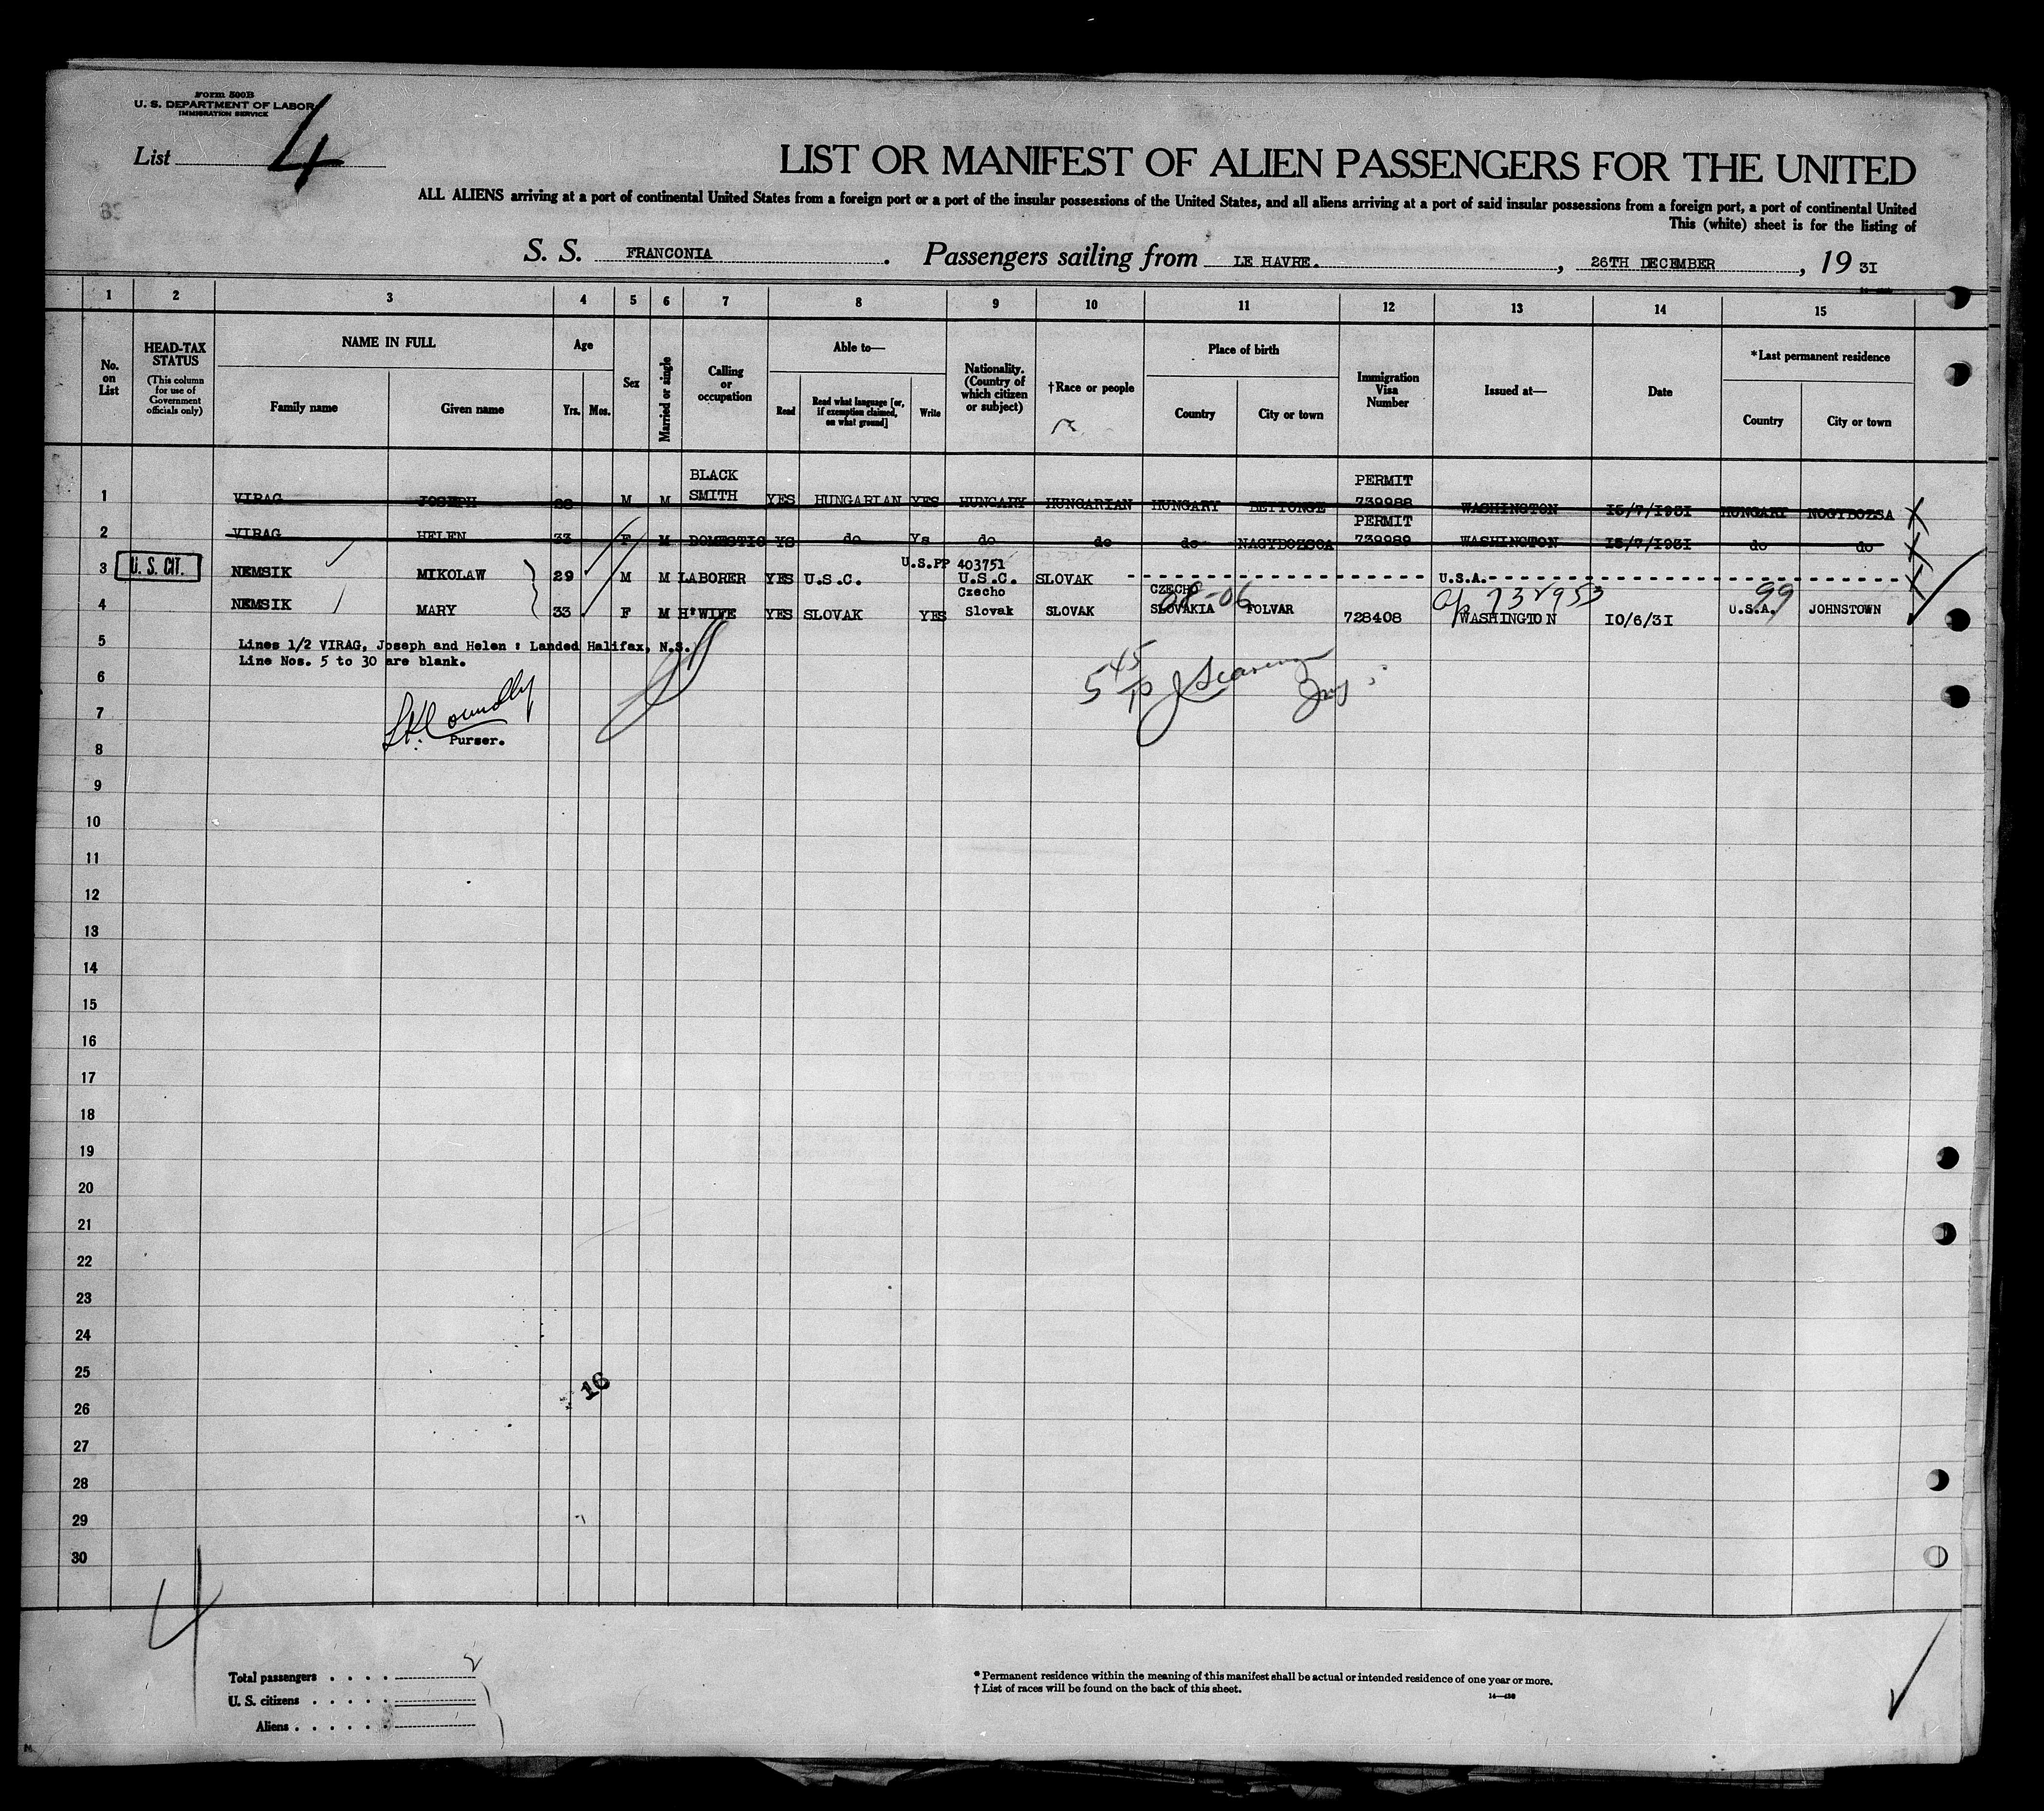 Form 500B
U. S. DEPARTMENT OF LABOR
IMMIGRATION SERVICE
List 4
LIST OR MANIFEST OF ALIEN PASSENGERS FOR THE UNITED
ALL ALIENS arriving at a port of continental United States from a foreign port or a port of the insular possessions of the United States, and all aliens arriving at a port of said insular possessions from a foreign port, a port of continental United
This (white) sheet is for the listing of
S. S. FRANCONIA. Passengers sailing from LE HAVRE. , 26TH DECEMBER , 19 31
1 2 3 4 5 6 7 8 9 10 11 12 13 14 15
No. on List
HEAD-TAX STATUS
(This column for use of Government officials only)
NAME IN FULL
Family name Given name
Age
Yrs. Mos.
Sex
Married or single
Calling or occupation
Able to—
Read
Read what language [or, if exemption claimed, on what ground]
Write
Nationality. (Country of which citizen or subject)
†Race or people
Place of birth
Country City or town
Immigration Visa Number
Issued at—
Date
*Last permanent residence
Country City or town
1 VIRAG JOSEPH 38 M M BLACK SMITH YES HUNGARIAN YES HUNGARY HUNGARIAN HUNGARY BETTONGE PERMIT 739988 WASHINGTON 15/7/1931 HUNGARY NOGYBOZSA
2 VIRAG HELEN 33 F M DOMESTIC YS do Ys do do do NAGYBOZSOA PERMIT 739989 WASHINGTON 15/7/1931 do do
3 U. S. CIT. NEMSIK MIKOLAW 29 M M LABORER YES U.S.C. U.S.PP 403751 U.S.C. SLOVAK U.S.A.
4 NEMSIK MARY 33 F M H'WIFE YES SLOVAK YES Czecho Slovak SLOVAK CZECHO SLOVAKIA FOLVAR 728408 WASHINGTON 10/6/31 U.S.A. JOHNSTOWN
08-06
732953
99
5 Lines 1/2 VIRAG, Joseph and Helen : Landed Halifax, N.S.
Line Nos. 5 to 30 are blank.
6
7
Purser.
8
9
10
11
12
13
14
15
16
17
18
19
20
21
22
23
24
25
16
26
27
28
29
30
4
Total passengers . . . . 2
U. S. citizens . . . . .
Aliens . . . . . .
* Permanent residence within the meaning of this manifest shall be actual or intended residence of one year or more.
† List of races will be found on the back of this sheet.